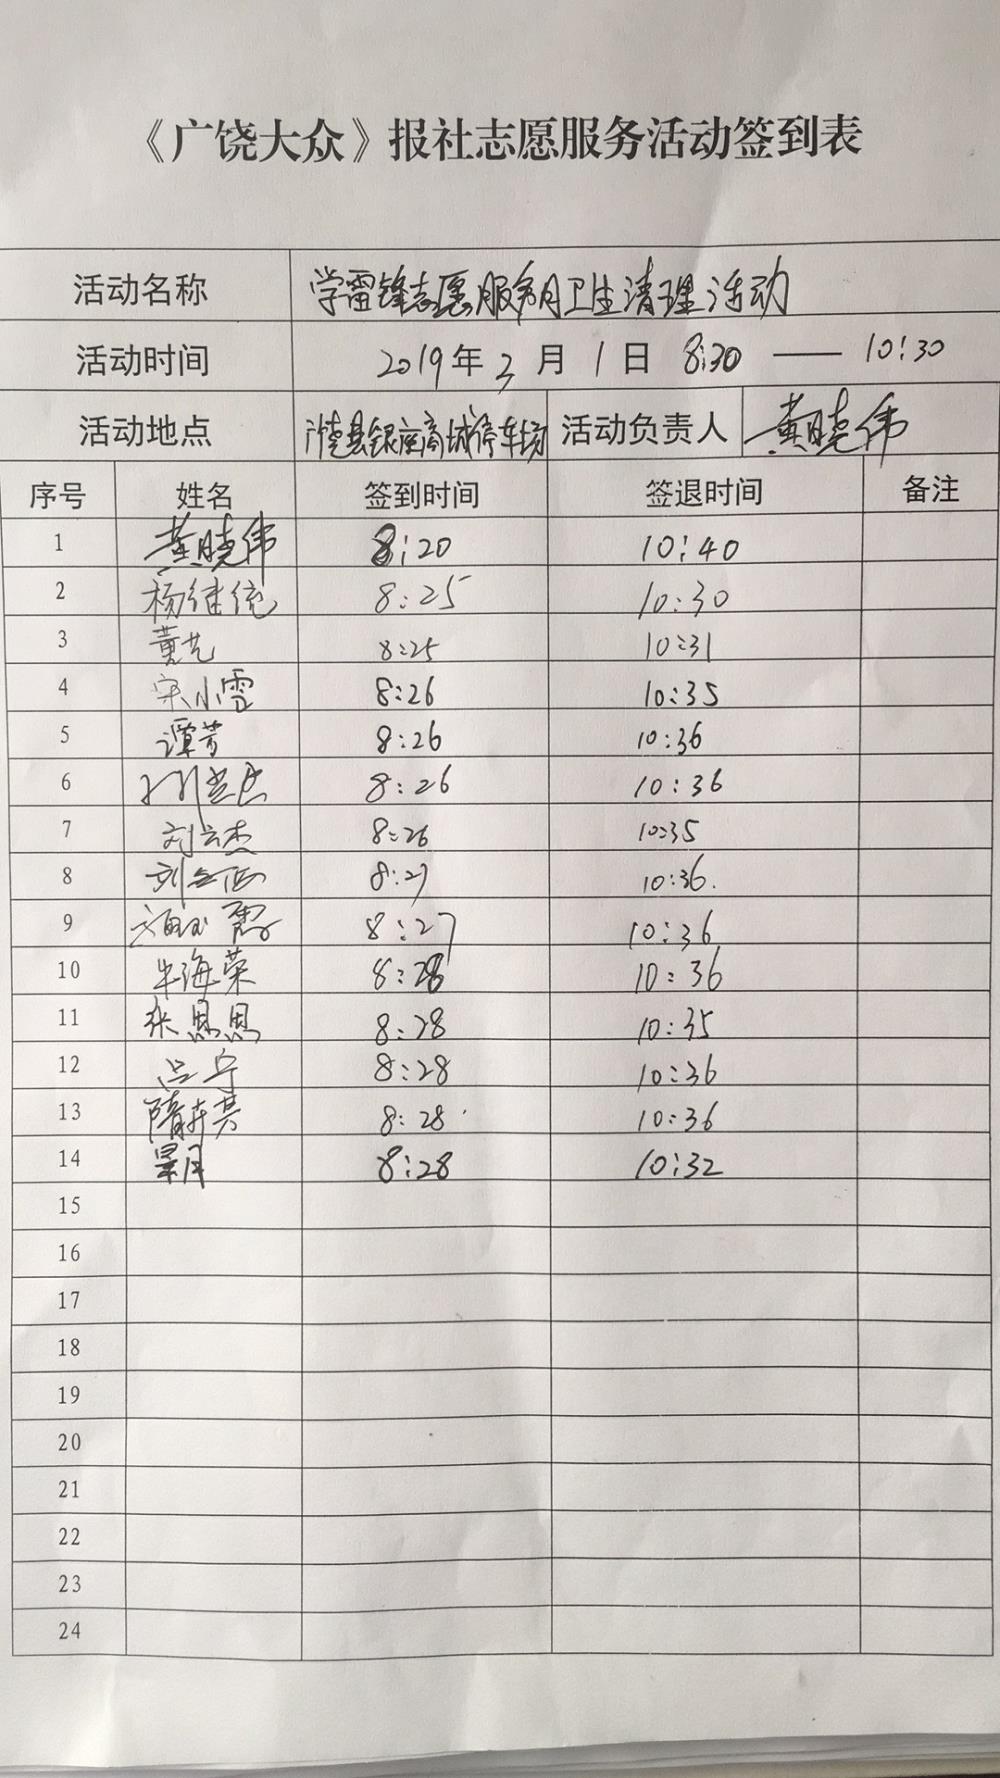 《广饶大众》报社志愿服务活动签到表
活动名称 学雷锋志愿服务月卫生清理活动
活动时间 2019年3月1日 8:30 —— 10:30
活动地点 广饶县银座商城停车场 活动负责人 黄晓伟
序号 姓名 签到时间 签退时间 备注
1 黄晓伟 8:20 10:40
2 杨继统 8:25 10:30
3 董艺 8:25 10:31
4 宋小雪 8:26 10:35
5 谭芳 8:26 10:36
6 8:26 10:36
7 刘云杰 8:26 10:35
8 8:27 10:36.
9 8:27 10:36
10 牛海荣 8:28 10:36
11 张恩恩 8:28 10:35
12 吕宁 8:28 10:36
13 8:28 10:36
14 8:28 10:32
15
16
17
18
19
20
21
22
23
24